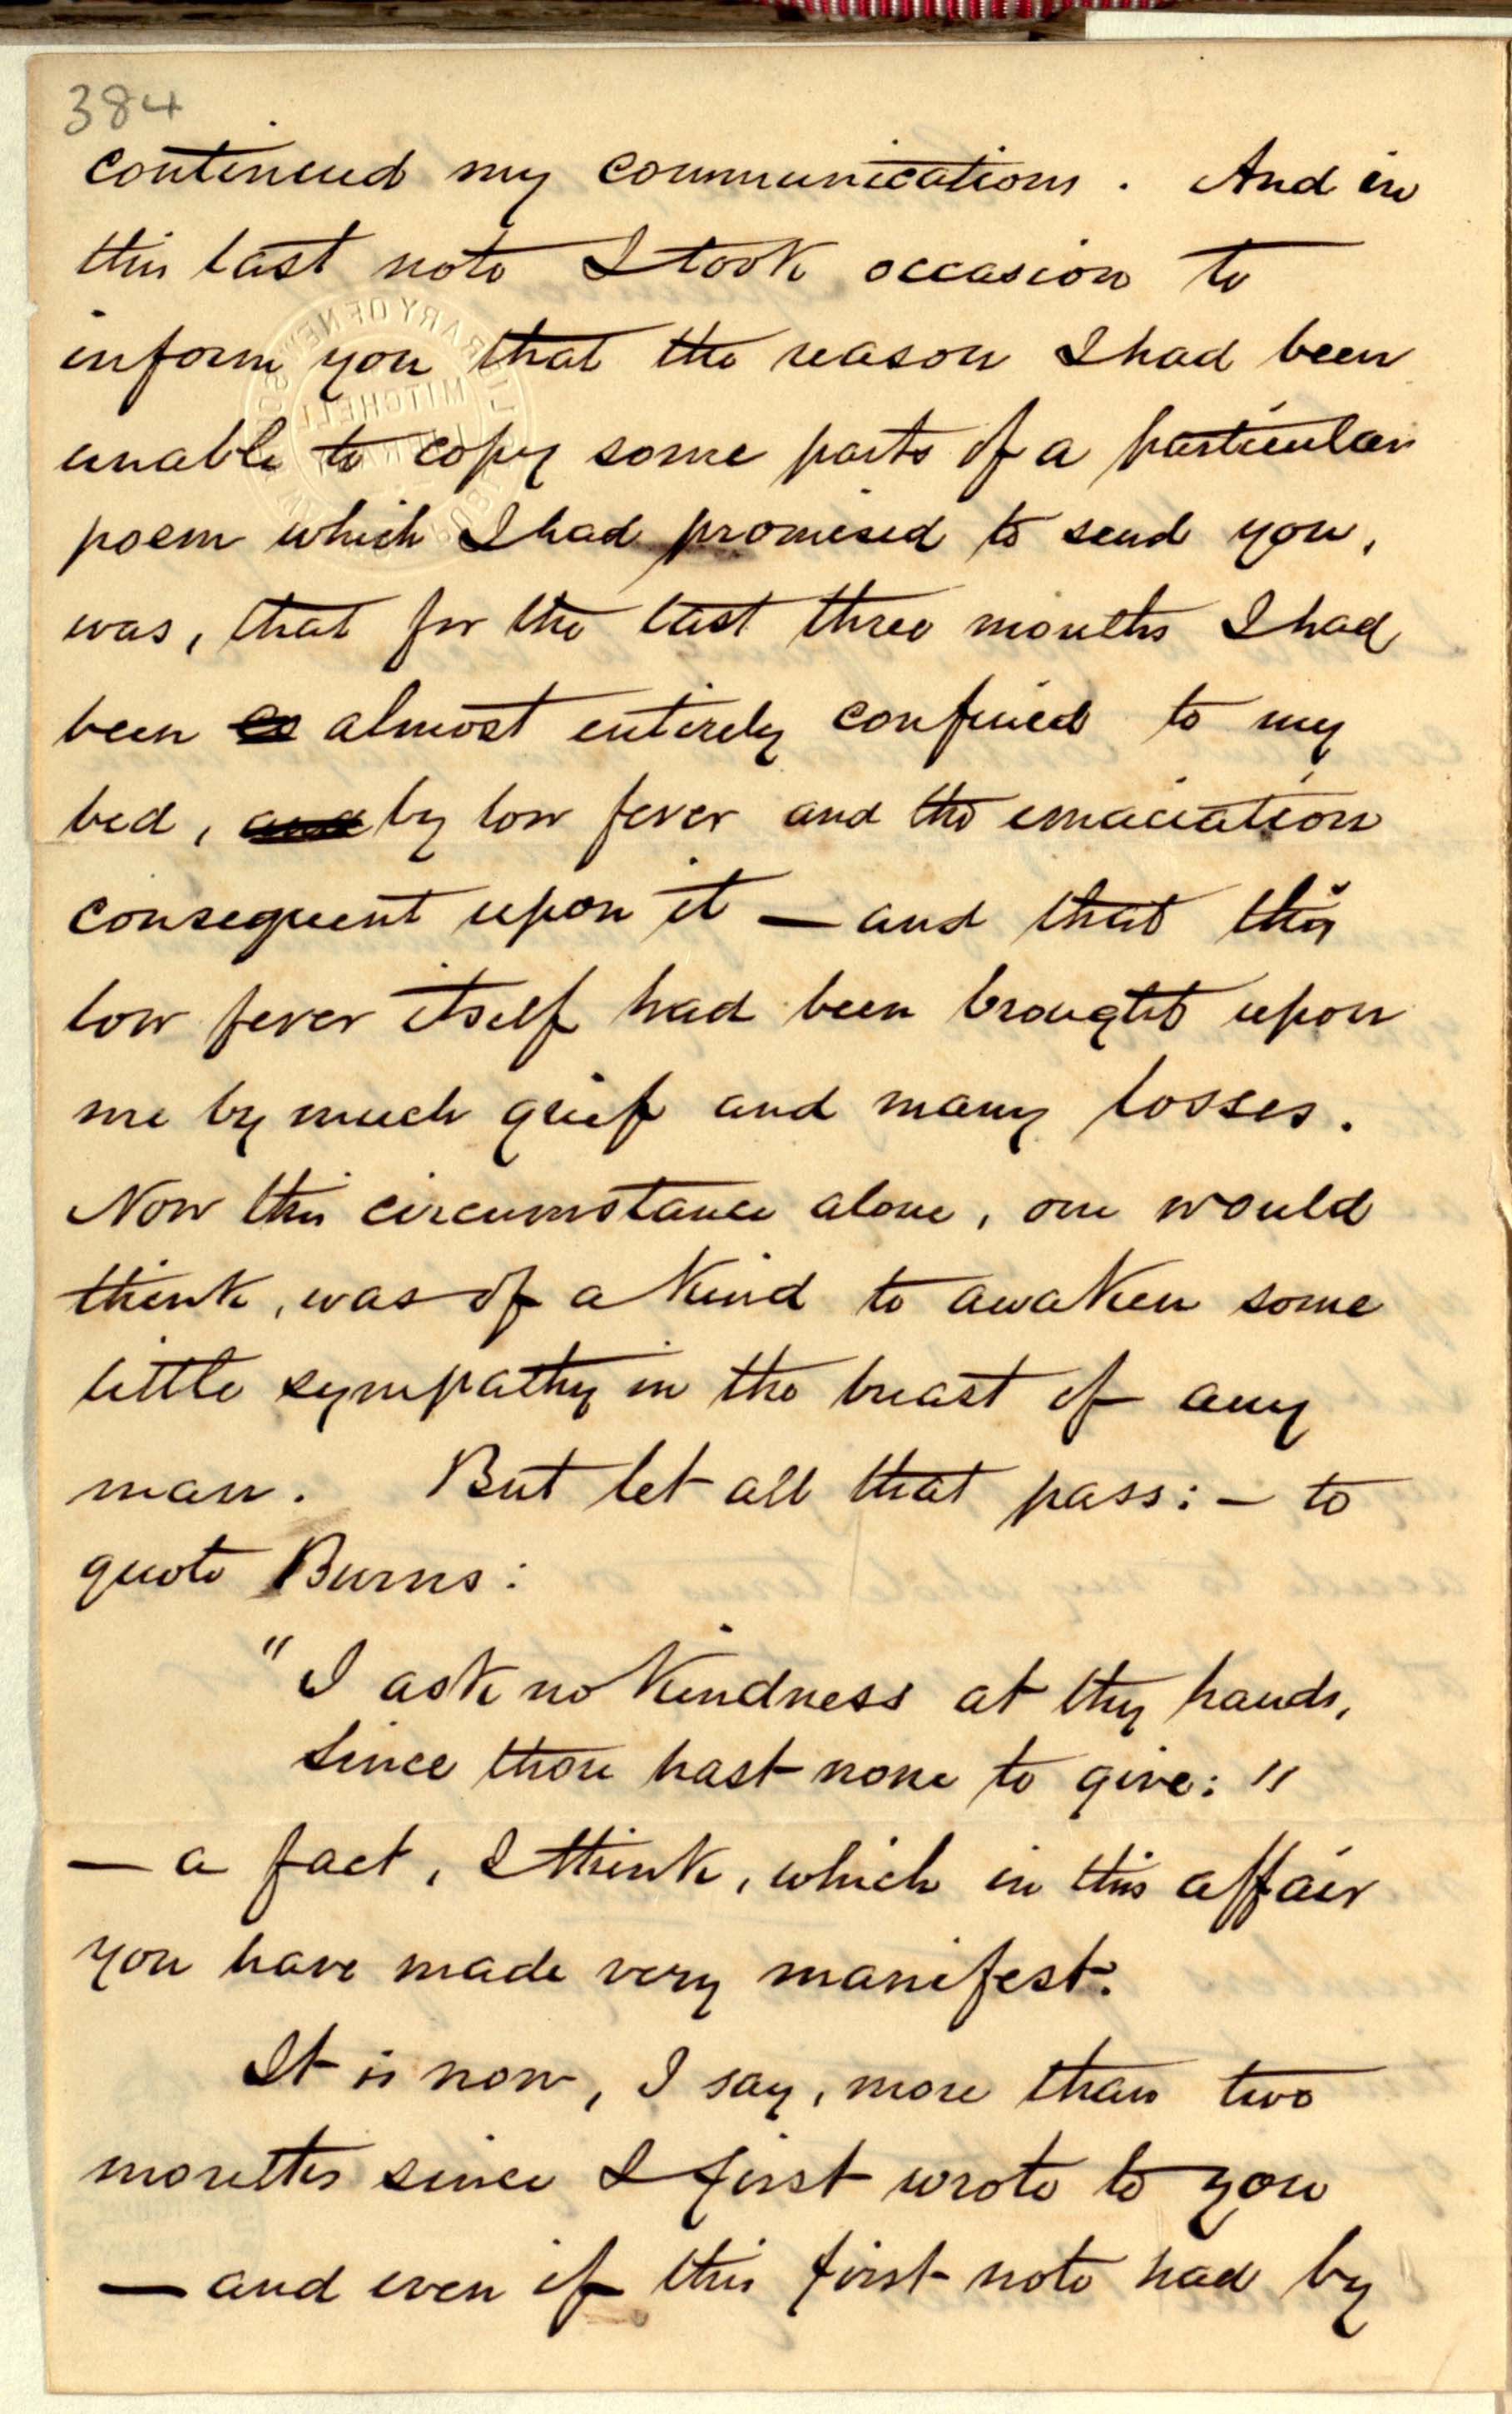 384
continued my communications. And in
this last note I took occasion to
inform you that the reason I had been
unable to copy some parts of a particular
poem which I had promised to send you,
was, that for the last three months I had
been almost entirely confined to my
bed, and by low fever and the emaciation
consequent upon it — and that this
low fever itself had been brought upon
me by much grief and many losses.
Now this circumstance alone, one would
think, was of a kind to awaken some
little sympathy in the breast of any
man. But let all that pass: — to
quote Burns:
"I ask no kindness at thy hands,
Since thou hast none to give: "
— a fact, I think, which in this affair
you have made very manifest.
It is now, I say, more than two
months since I first wrote to you
— and even if this first note had by
LIBRARY OF NEW
MITCHELL